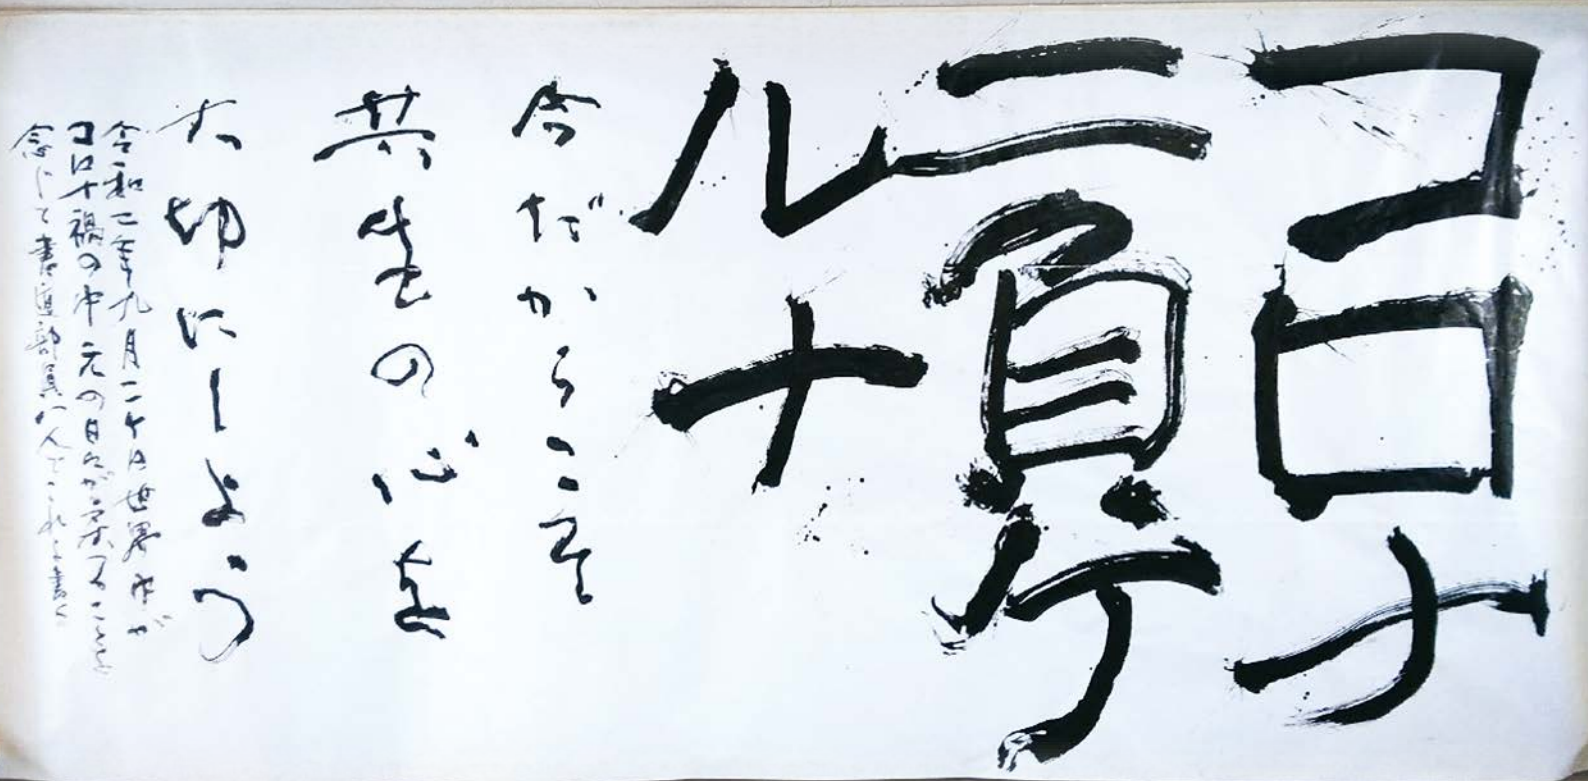 コロナ
ニ負ケ
ルナ
今だからこそ
共生の心を
大切にしよう
令和二年九月二十日世界中が
コロナ禍の中元の日々が戻ることを
念じて書道部員八人でこれを書く